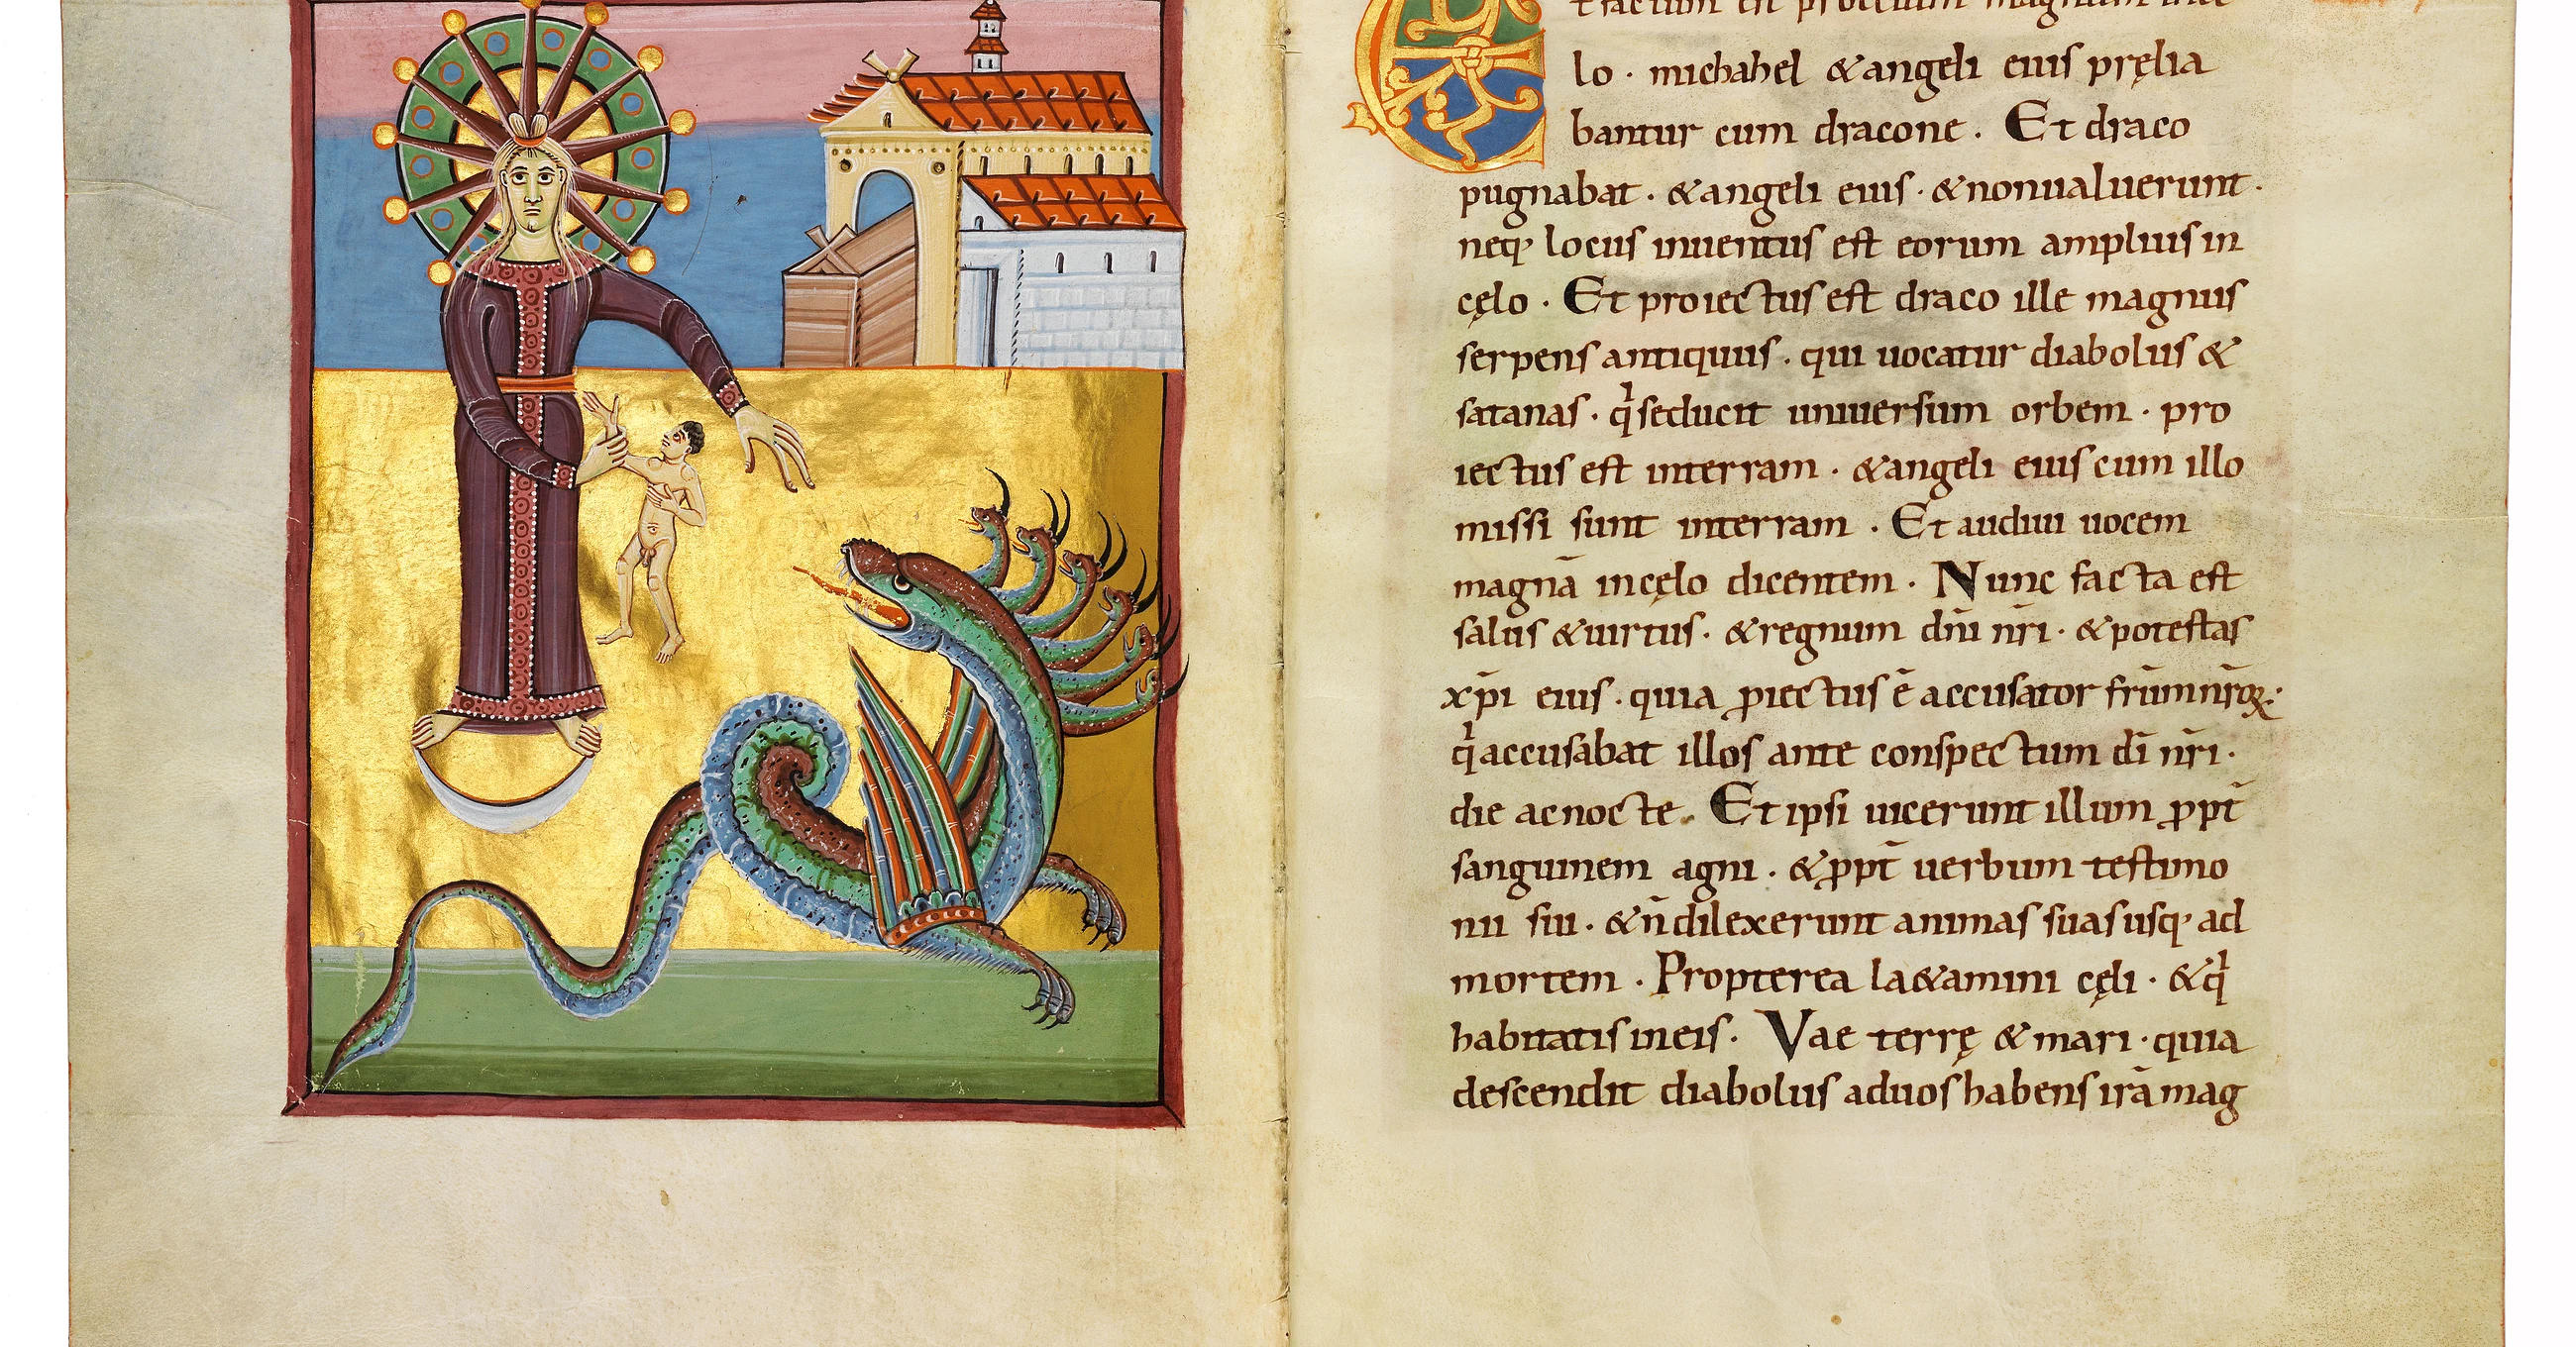 factum est proelium magnum in cę
lo · michahel & angeli eius pręlia
bantur cum dracone . Et draco
pugnabat · & angeli eius · & non ualuerunt .
neq; locus inuentus est eorum amplius in
cęlo . Et proiectus est draco ille magnus
serpens antiquus . qui uocatur diabolus &
satanas · qi seducit uniuersum orbem · pro
iectus est interram · & angeli eius cum illo
missi sunt interram . Et audiui uocem
magnā incęlo dicentem . Nunc facta est
salus & uirtus · & regnum dn̄i nr̄i · & potestas
xp̄i eius . quia ꝓiectus ē accusator frūm nr̄oꝝ .
qi accusabat illos ante conspectum dī nr̄i .
die ac nocte . Et ipsi uicerunt illum ꝓpt̄
sanguinem agni . & ꝓpt̄ uerbum testimo
nii sui . & n̄ dilexerunt animas suas usq; ad
mortem . Propterea la&amini cęli · & qi
habitatis ineis . Vae terrę & mari · quia
descendit diabolus aduos habens irā mag